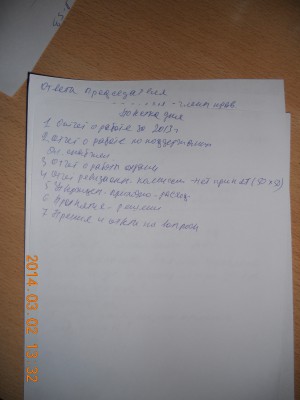 Отчёт председателя
- члены прав
Повестка дня
1. Отчёт о работе за 2013 г
2. Отчёт о работе по поддержанию
3. Отчёт о работе охраны
4. Отчёт ревизион. комиссии - не принят (50 x 50)
5. приходно-расход.
6. Принятие решения
7. Прения и ответы на вопросы
2014.03.02 13:32